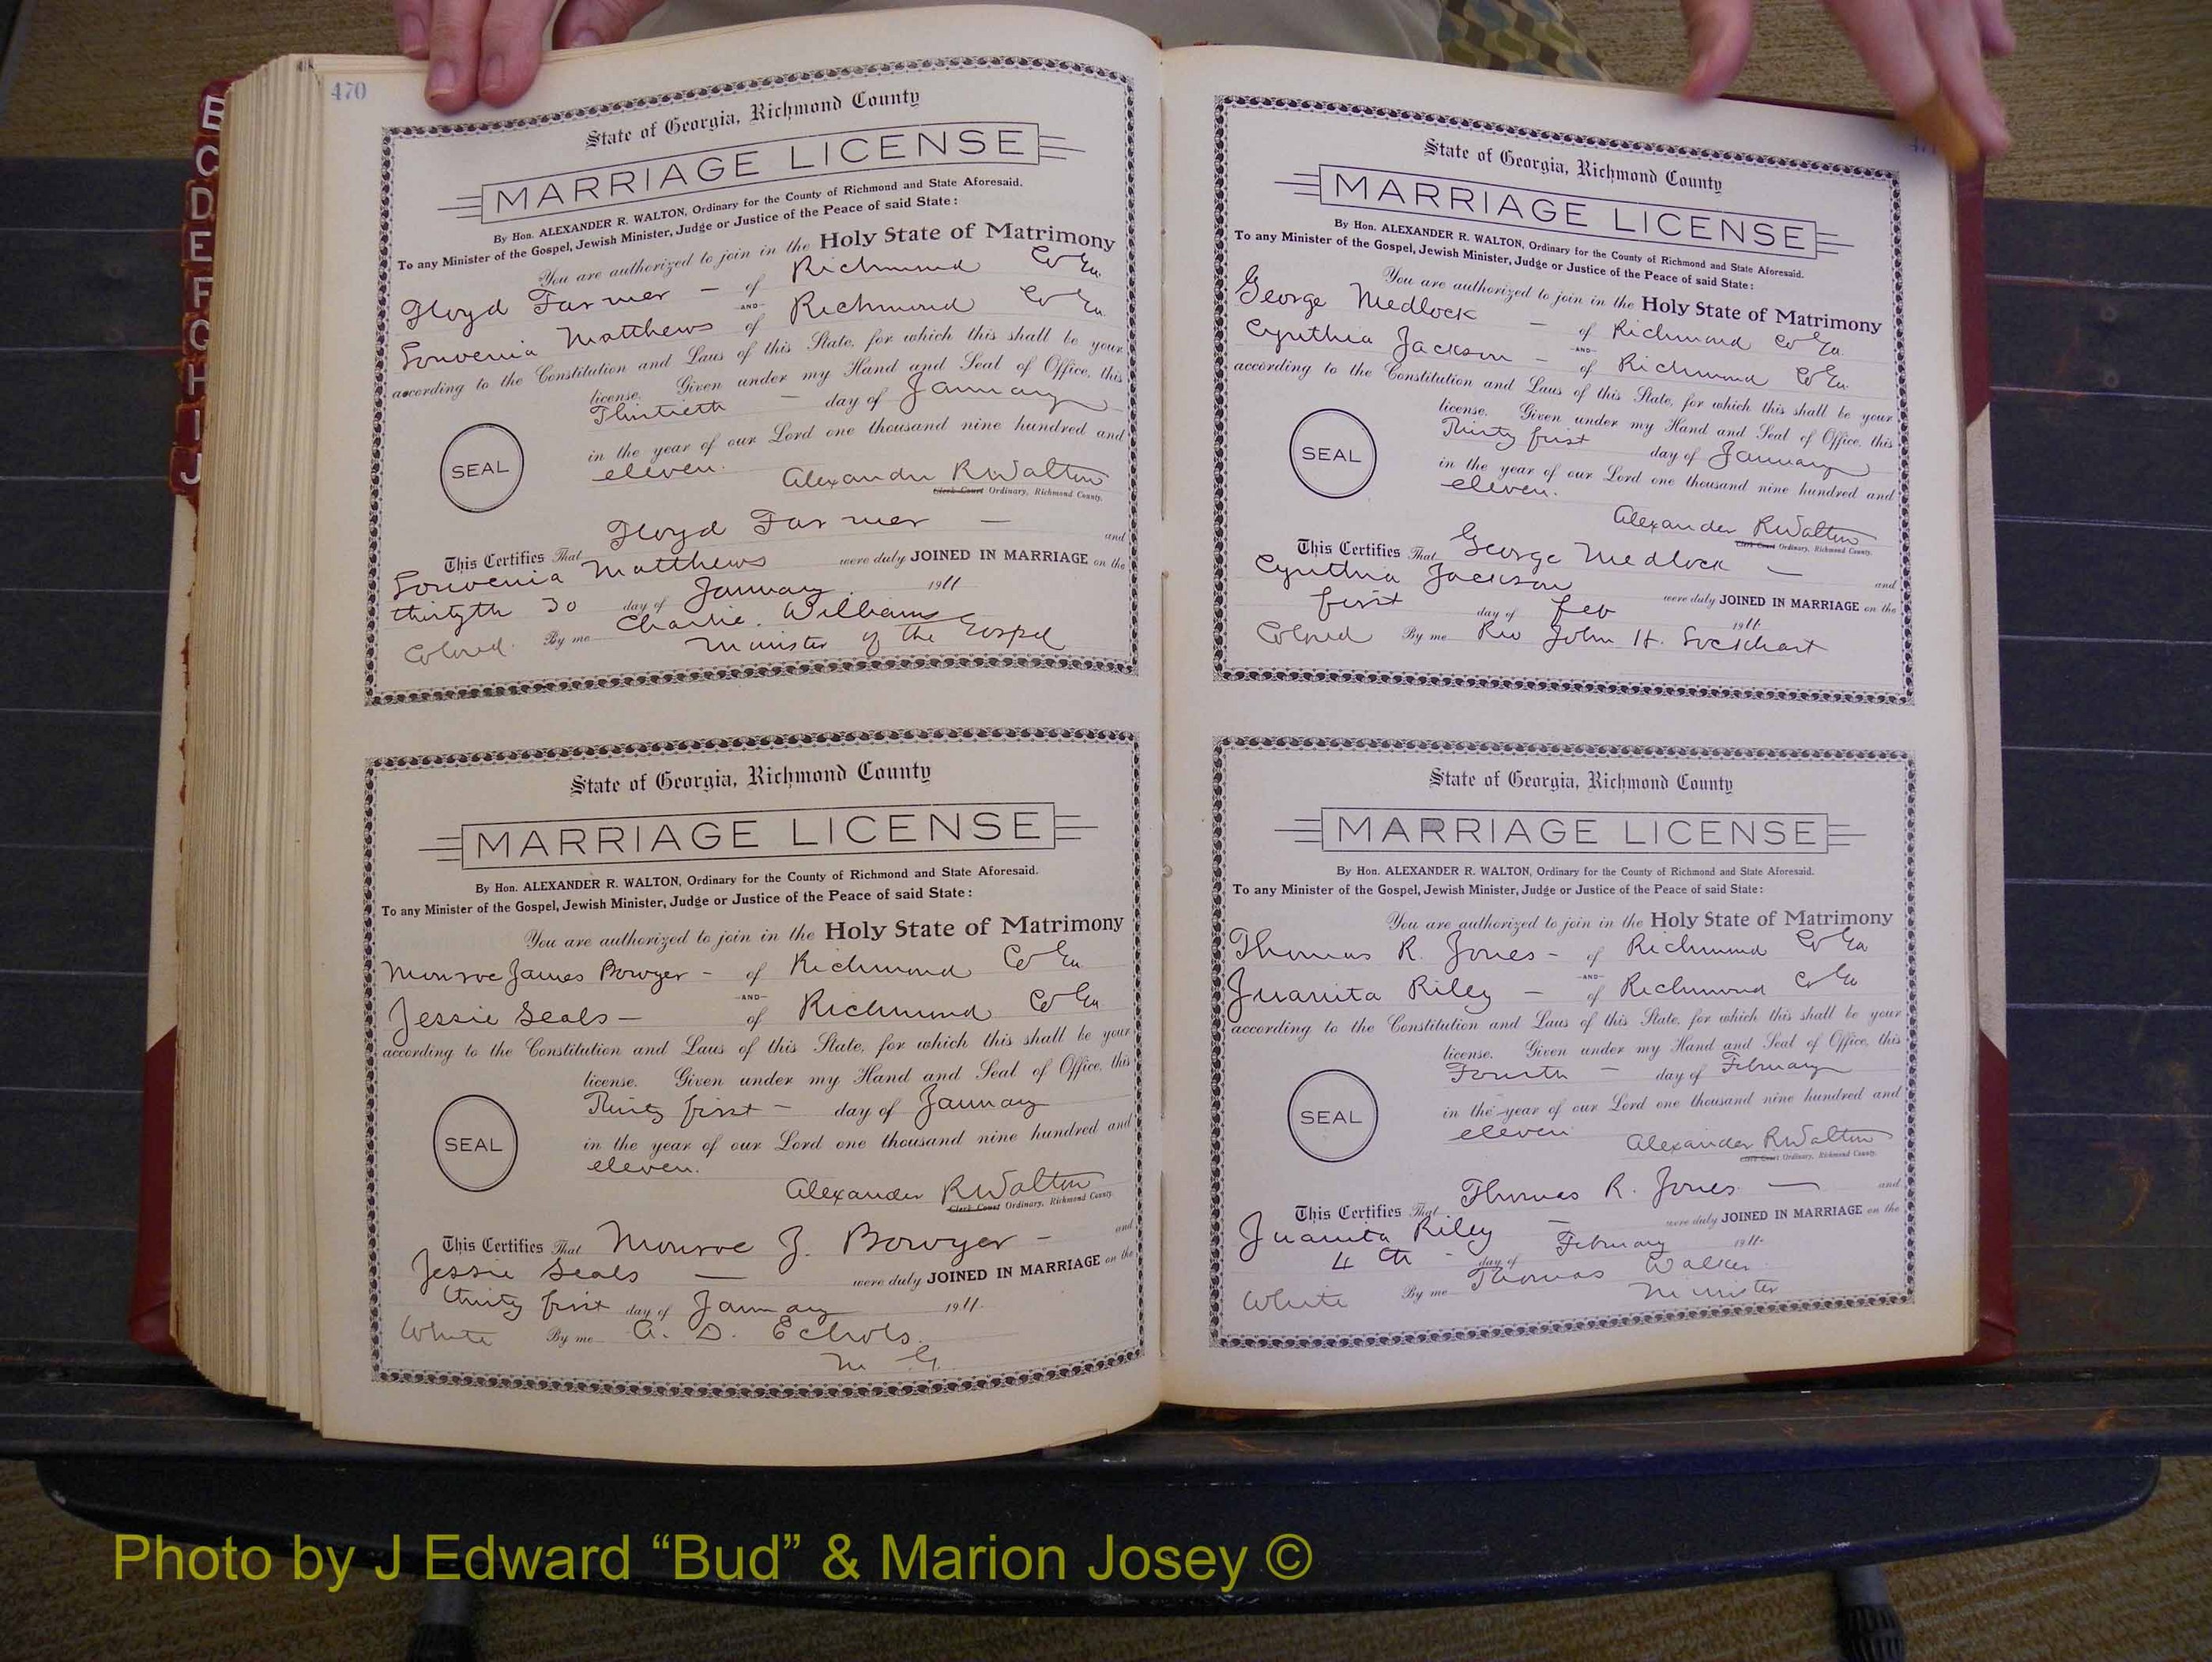 470
B
C
D
E
F
G
H
I
J
State of Georgia, Richmond County
MARRIAGE LICENSE
By Hon. ALEXANDER R. WALTON, Ordinary for the County of Richmond and State Aforesaid.
To any Minister of the Gospel, Jewish Minister, Judge or Justice of the Peace of said State:
You are authorized to join in the Holy State of Matrimony
Floyd Farmer - of Richmond Co Ga.
-AND-
Souvenia Matthews of Richmond Co Ga.
according to the Constitution and Laws of this State, for which this shall be your
license. Given under my Hand and Seal of Office, this
Thirtieth - day of January
in the year of our Lord one thousand nine hundred and
SEAL
eleven.
Alexander R Walton
Clerk Court Ordinary, Richmond County.
This Certifies That Floyd Farmer - and
Souvenia Matthews were duly JOINED IN MARRIAGE on the
thirtyth 30 day of January 1911
Colored. By me Charlie. Williams
Minister of the Gospel
State of Georgia, Richmond County
MARRIAGE LICENSE
By Hon. ALEXANDER R. WALTON, Ordinary for the County of Richmond and State Aforesaid.
To any Minister of the Gospel, Jewish Minister, Judge or Justice of the Peace of said State:
You are authorized to join in the Holy State of Matrimony
Monroe James Bowyer - of Richmond Co Ga
-AND-
Jessie Seals - of Richmond Co Ga
according to the Constitution and Laws of this State, for which this shall be your
license. Given under my Hand and Seal of Office, this
Thirty first - day of January
in the year of our Lord one thousand nine hundred and
SEAL
eleven.
Alexander R Walton
Clerk Court Ordinary, Richmond County.
This Certifies That Monroe J. Bowyer - and
Jessie Seals - were duly JOINED IN MARRIAGE on the
thirty first day of January 1911.
White By me A. D. Echols.
M G.
471
State of Georgia, Richmond County
MARRIAGE LICENSE
By Hon. ALEXANDER R. WALTON, Ordinary for the County of Richmond and State Aforesaid.
To any Minister of the Gospel, Jewish Minister, Judge or Justice of the Peace of said State:
You are authorized to join in the Holy State of Matrimony
George Medlock - of Richmond Co Ga.
-AND-
Cynthia Jackson - of Richmond Co Ga.
according to the Constitution and Laws of this State, for which this shall be your
license. Given under my Hand and Seal of Office, this
Thirty first day of January
in the year of our Lord one thousand nine hundred and
SEAL
eleven.
Alexander R Walton
Clerk Court Ordinary, Richmond County.
This Certifies That George Medlock - and
Cynthia Jackson were duly JOINED IN MARRIAGE on the
first day of feb 1911.
Colored By me Rev John H. Lockhart
State of Georgia, Richmond County
MARRIAGE LICENSE
By Hon. ALEXANDER R. WALTON, Ordinary for the County of Richmond and State Aforesaid.
To any Minister of the Gospel, Jewish Minister, Judge or Justice of the Peace of said State:
You are authorized to join in the Holy State of Matrimony
Thomas R. Jones - of Richmond Co Ga
-AND-
Juanita Riley - of Richmond Co Ga
according to the Constitution and Laws of this State, for which this shall be your
license. Given under my Hand and Seal of Office, this
Fourth - day of February
in the year of our Lord one thousand nine hundred and
SEAL
eleven
Alexander R Walton
Clerk Court Ordinary, Richmond County.
This Certifies That Thomas R. Jones - and
Juanita Riley - were duly JOINED IN MARRIAGE on the
4th - day of February 1911.
White By me Thomas Walker
Minister
Photo by J Edward “Bud” & Marion Josey ©